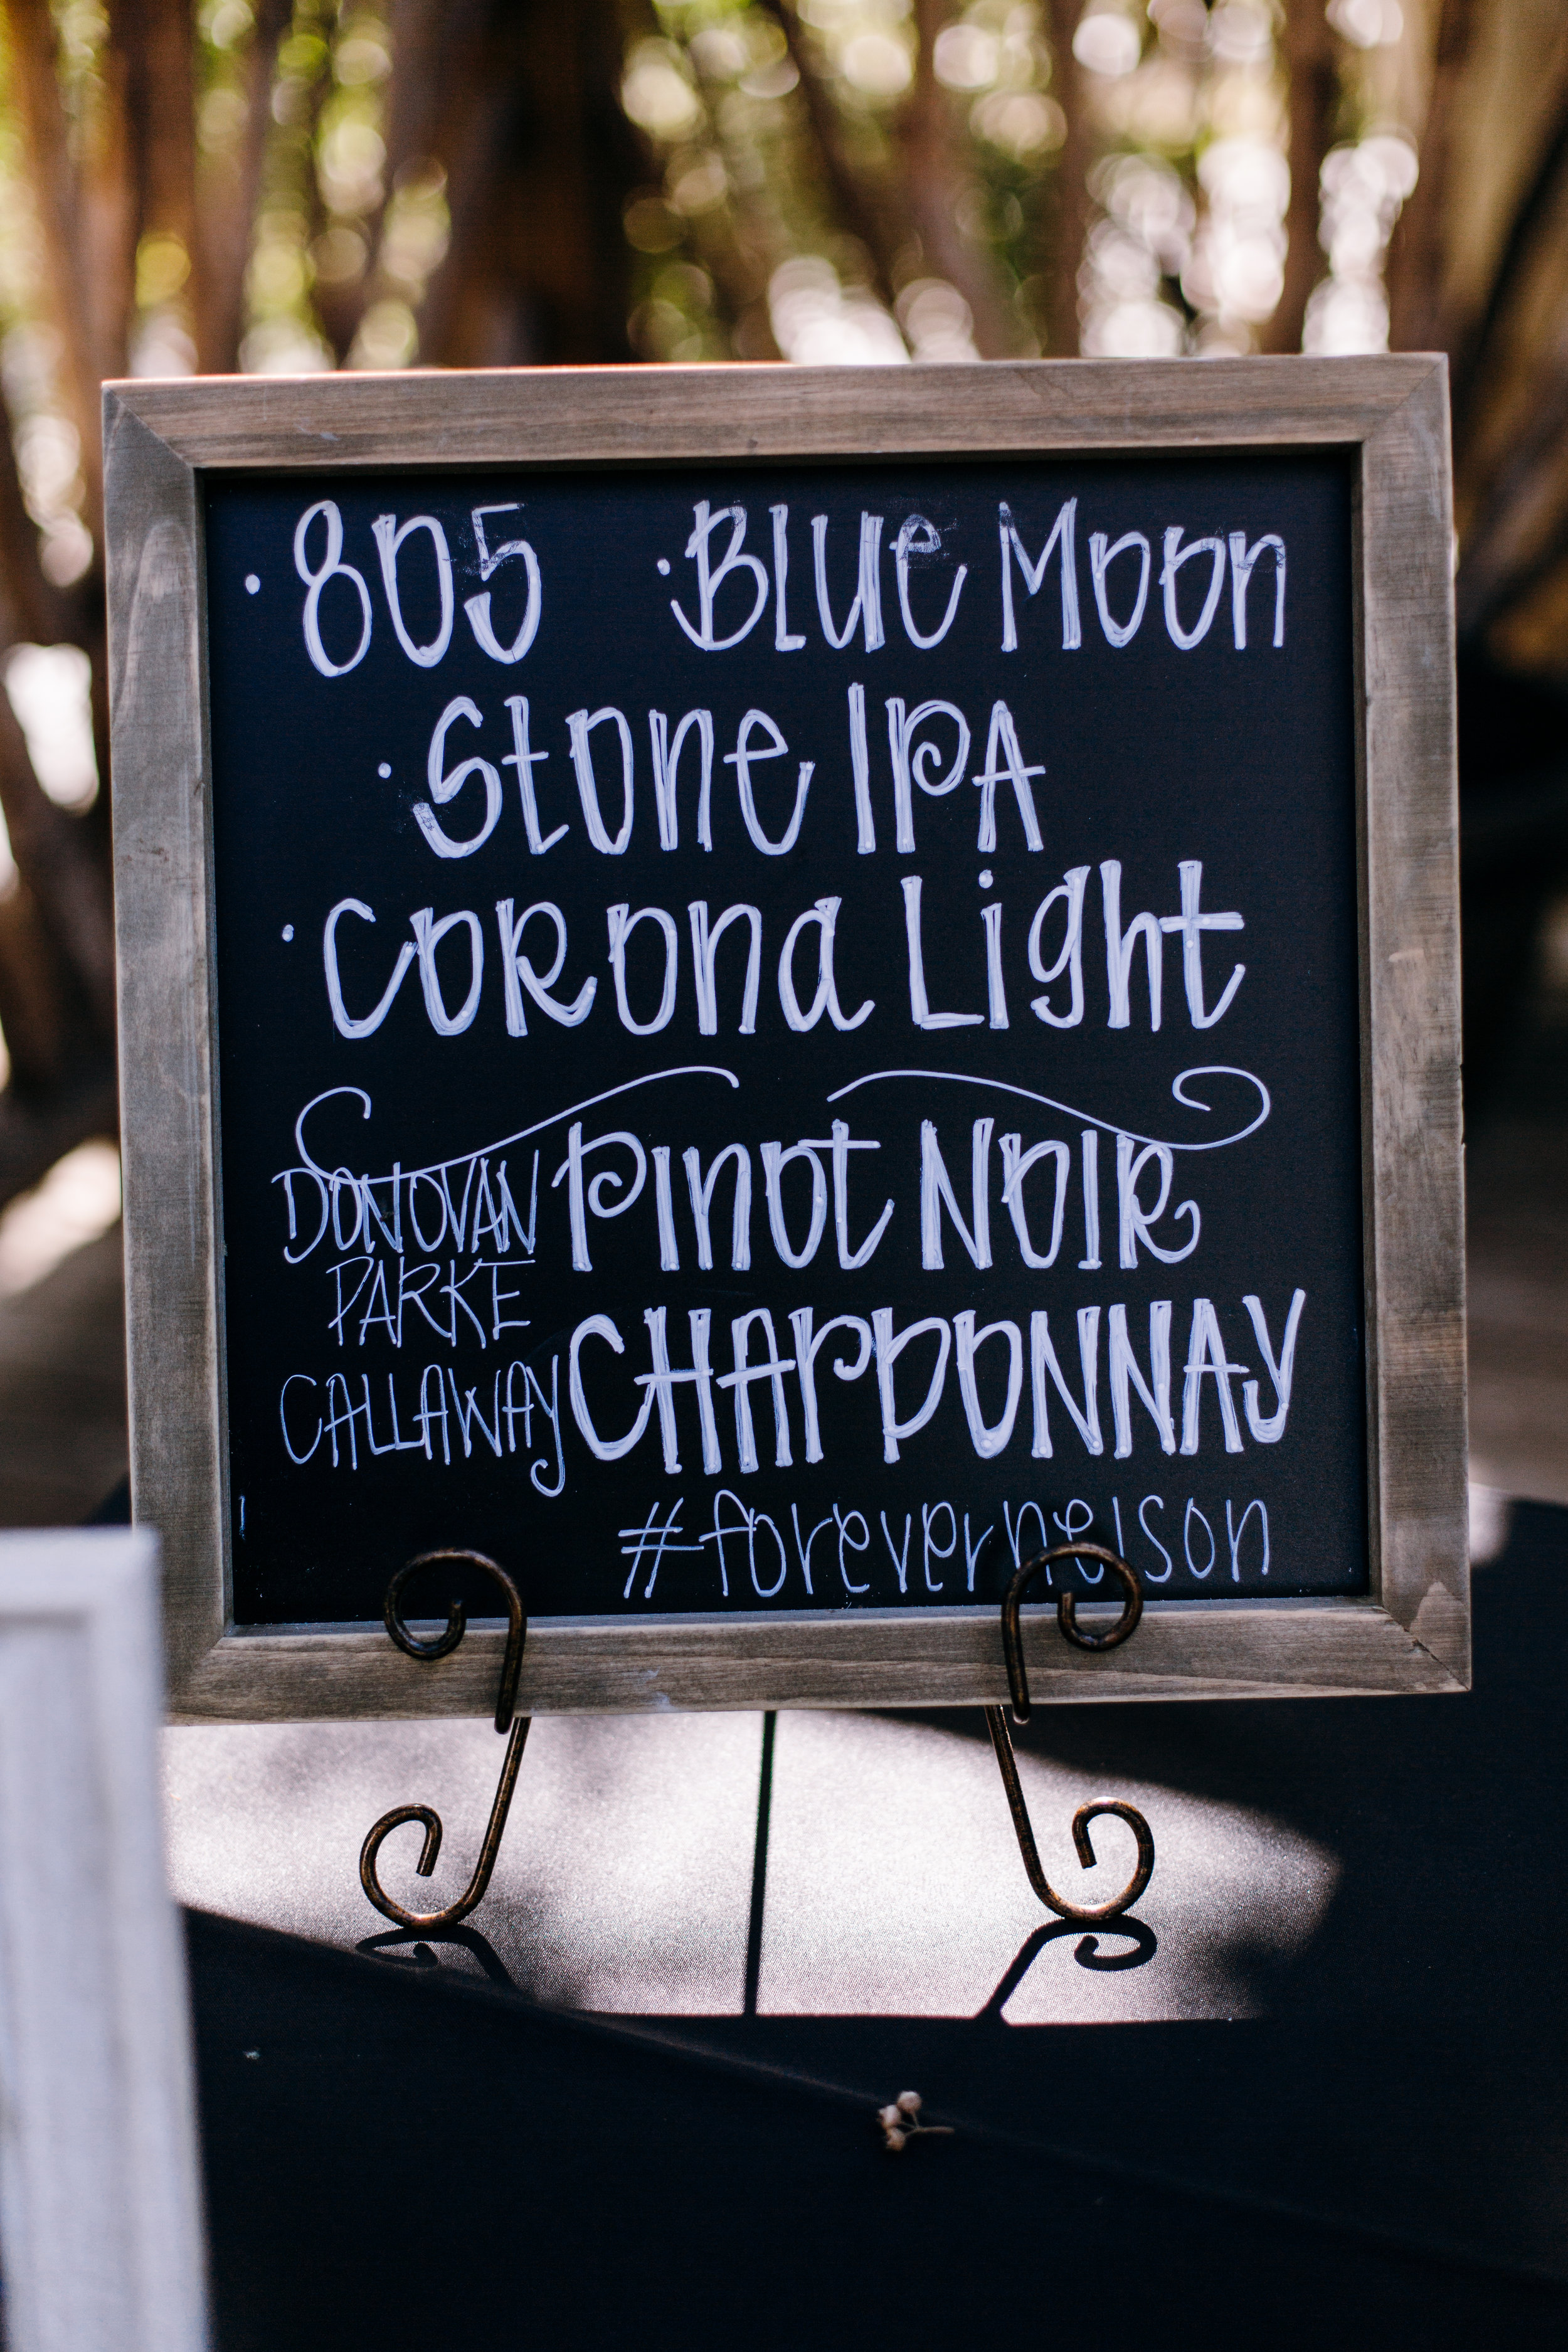 • 805 • Blue Moon
• Stone IPA
• Corona Light
DONOVAN PINOT NOIR
PARKE
CALLAWAY CHARDONNAY
#forevernelson